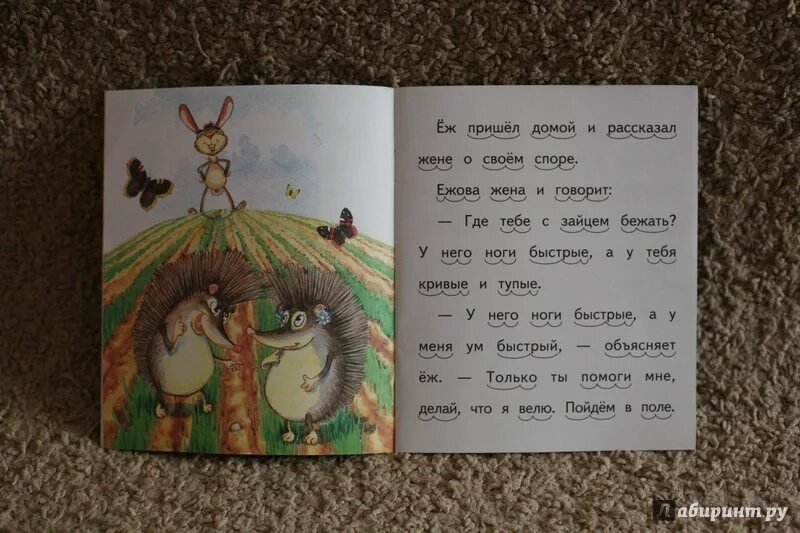 Ёж пришёл домой и рассказал
жене о своём споре.
Ежова жена и говорит:
— Где тебе с зайцем бежать?
У него ноги быстрые, а у тебя
кривые и тупые.
— У него ноги быстрые, а у
меня ум быстрый, — объясняет
ёж. — Только ты помоги мне,
делай, что я велю. Пойдём в поле.
Лабиринт.ру